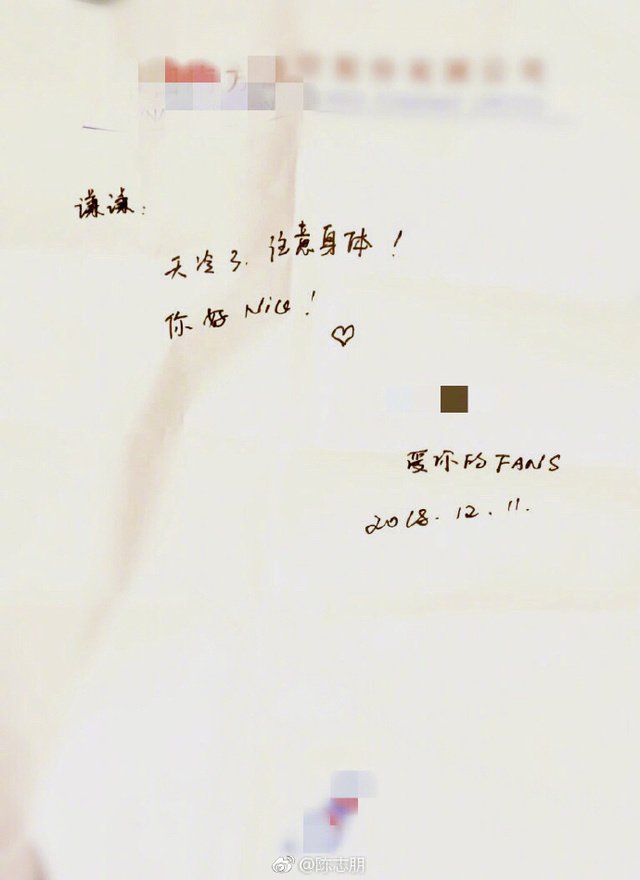 谦谦:
天冷了、注意身体!
你好Nice!
爱你的FANS
2018.12.11.
@陈志朋